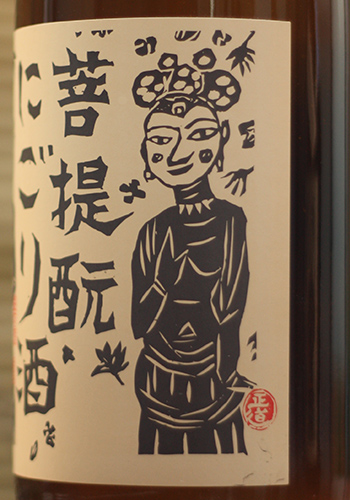 菩提酛
にごり酒
正道